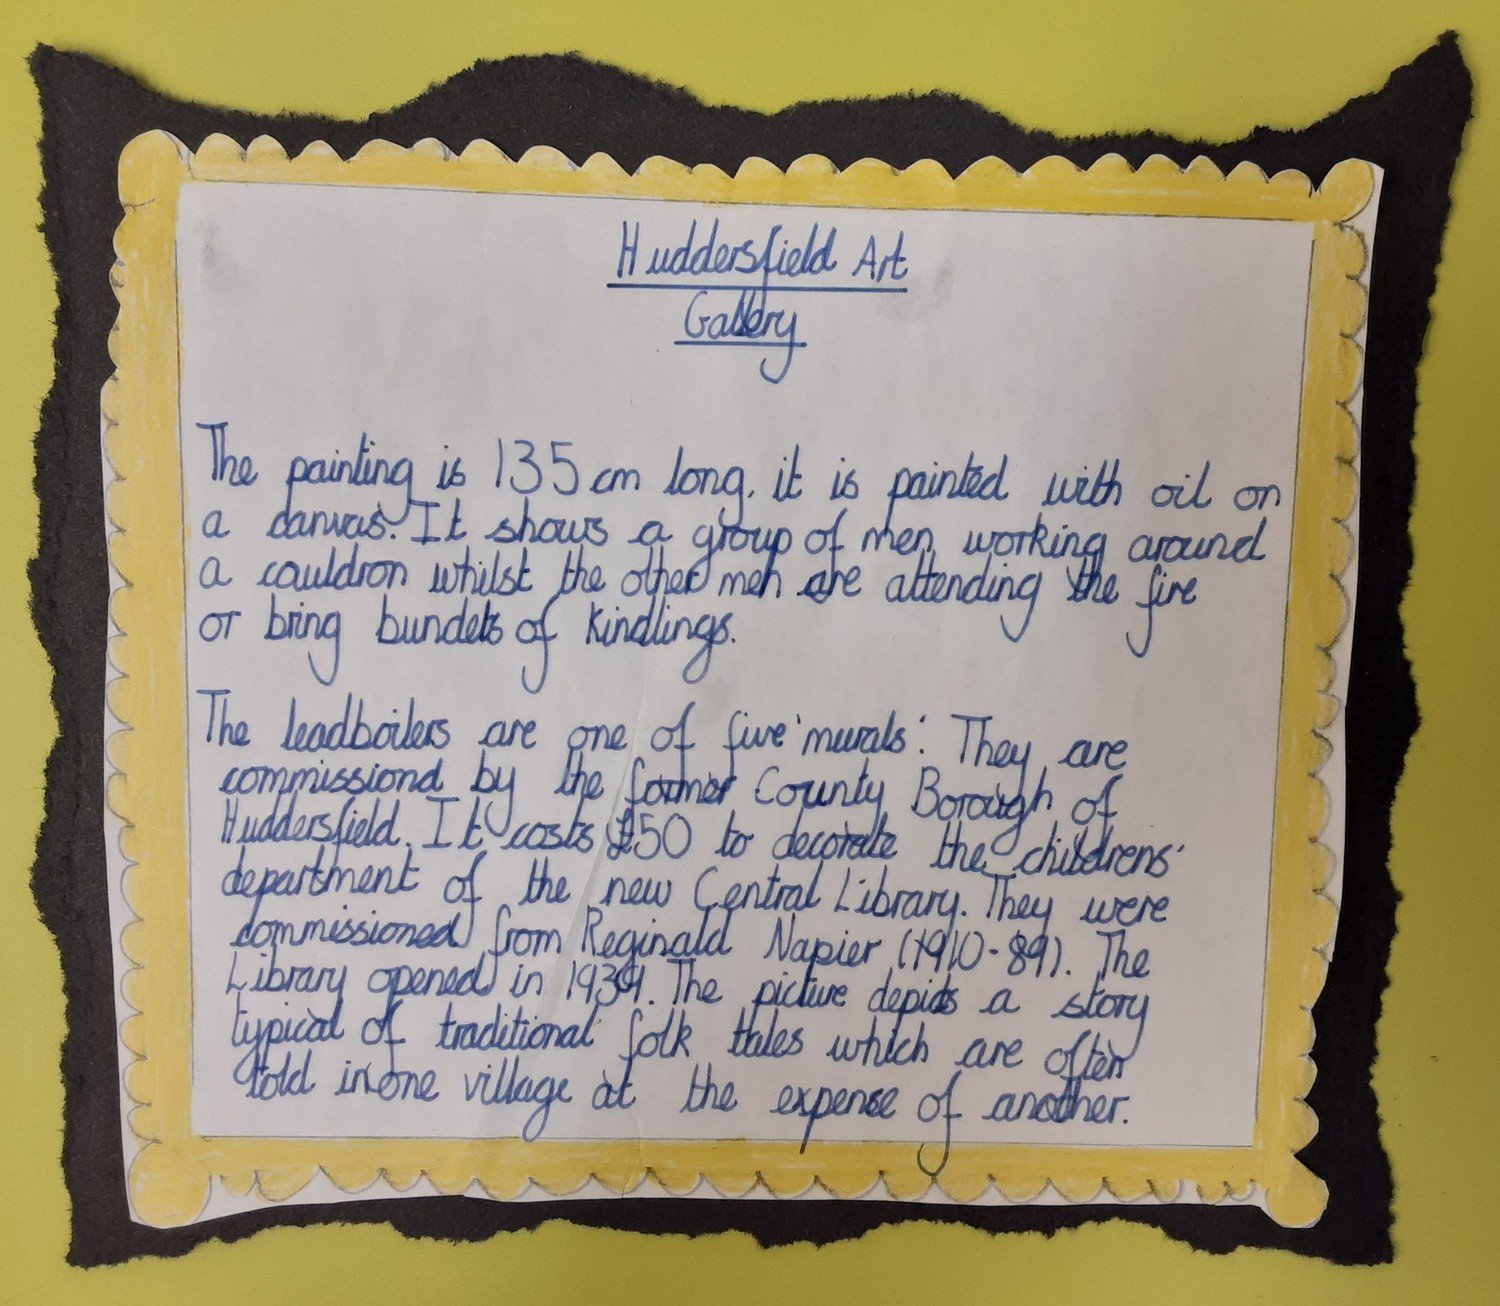 Huddersfield Art
Gallery
The painting is 135cm long, it is painted with oil on
a canvas. It shows a group of men working around
a cauldron whilst the other men are attending the fire
or bring bundels of kindlings.
The leadboilers are one of five 'murals'. They are
commissiond by the former County Borough of
Huddersfield. It costs £50 to decorate the childrens'
department of the new Central Library. They were
commissioned from Reginald Napier (1910-89). The
Library opened in 1939. The picture depicts a story
typical of traditional folk tales which are often
told in one village at the expense of another.